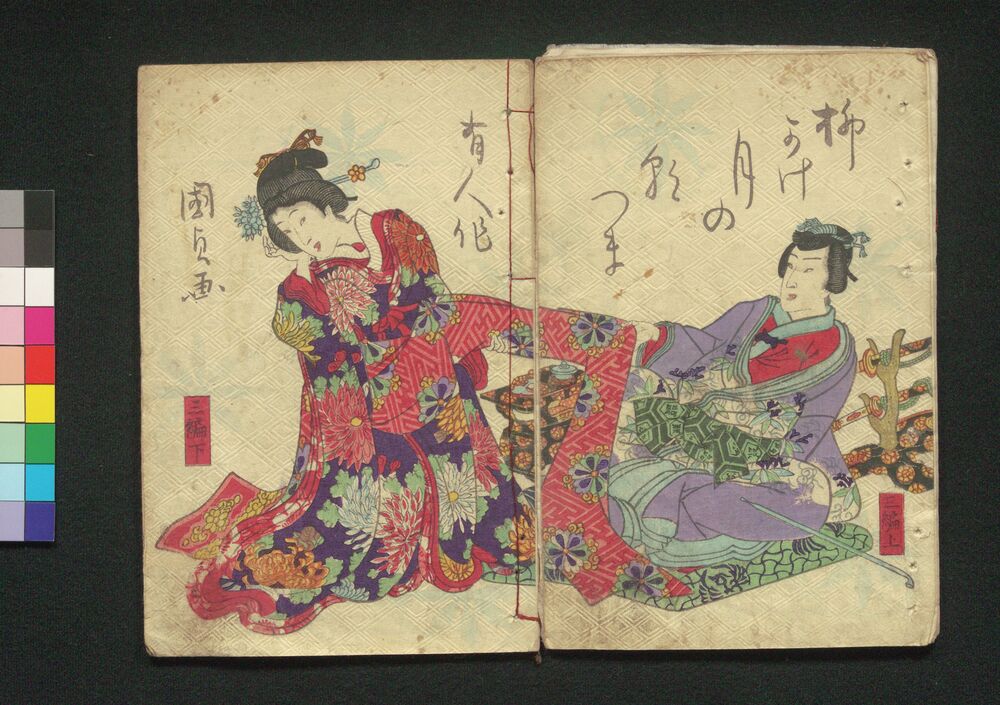 柳
うけ
月の
朝
つま
三編上
有人作
國貞画
三編下